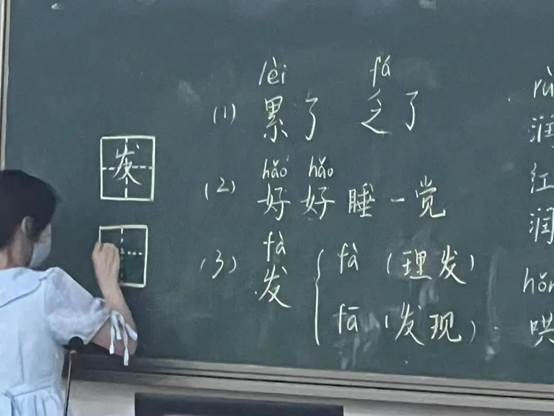 lèi fá
(1) 累了 乏了
hǎo hǎo
(2) 好好睡一觉
fà
(3) 发 { fà (理发)
fā (发现)
发
rù
润
红
润
hǒn
哄